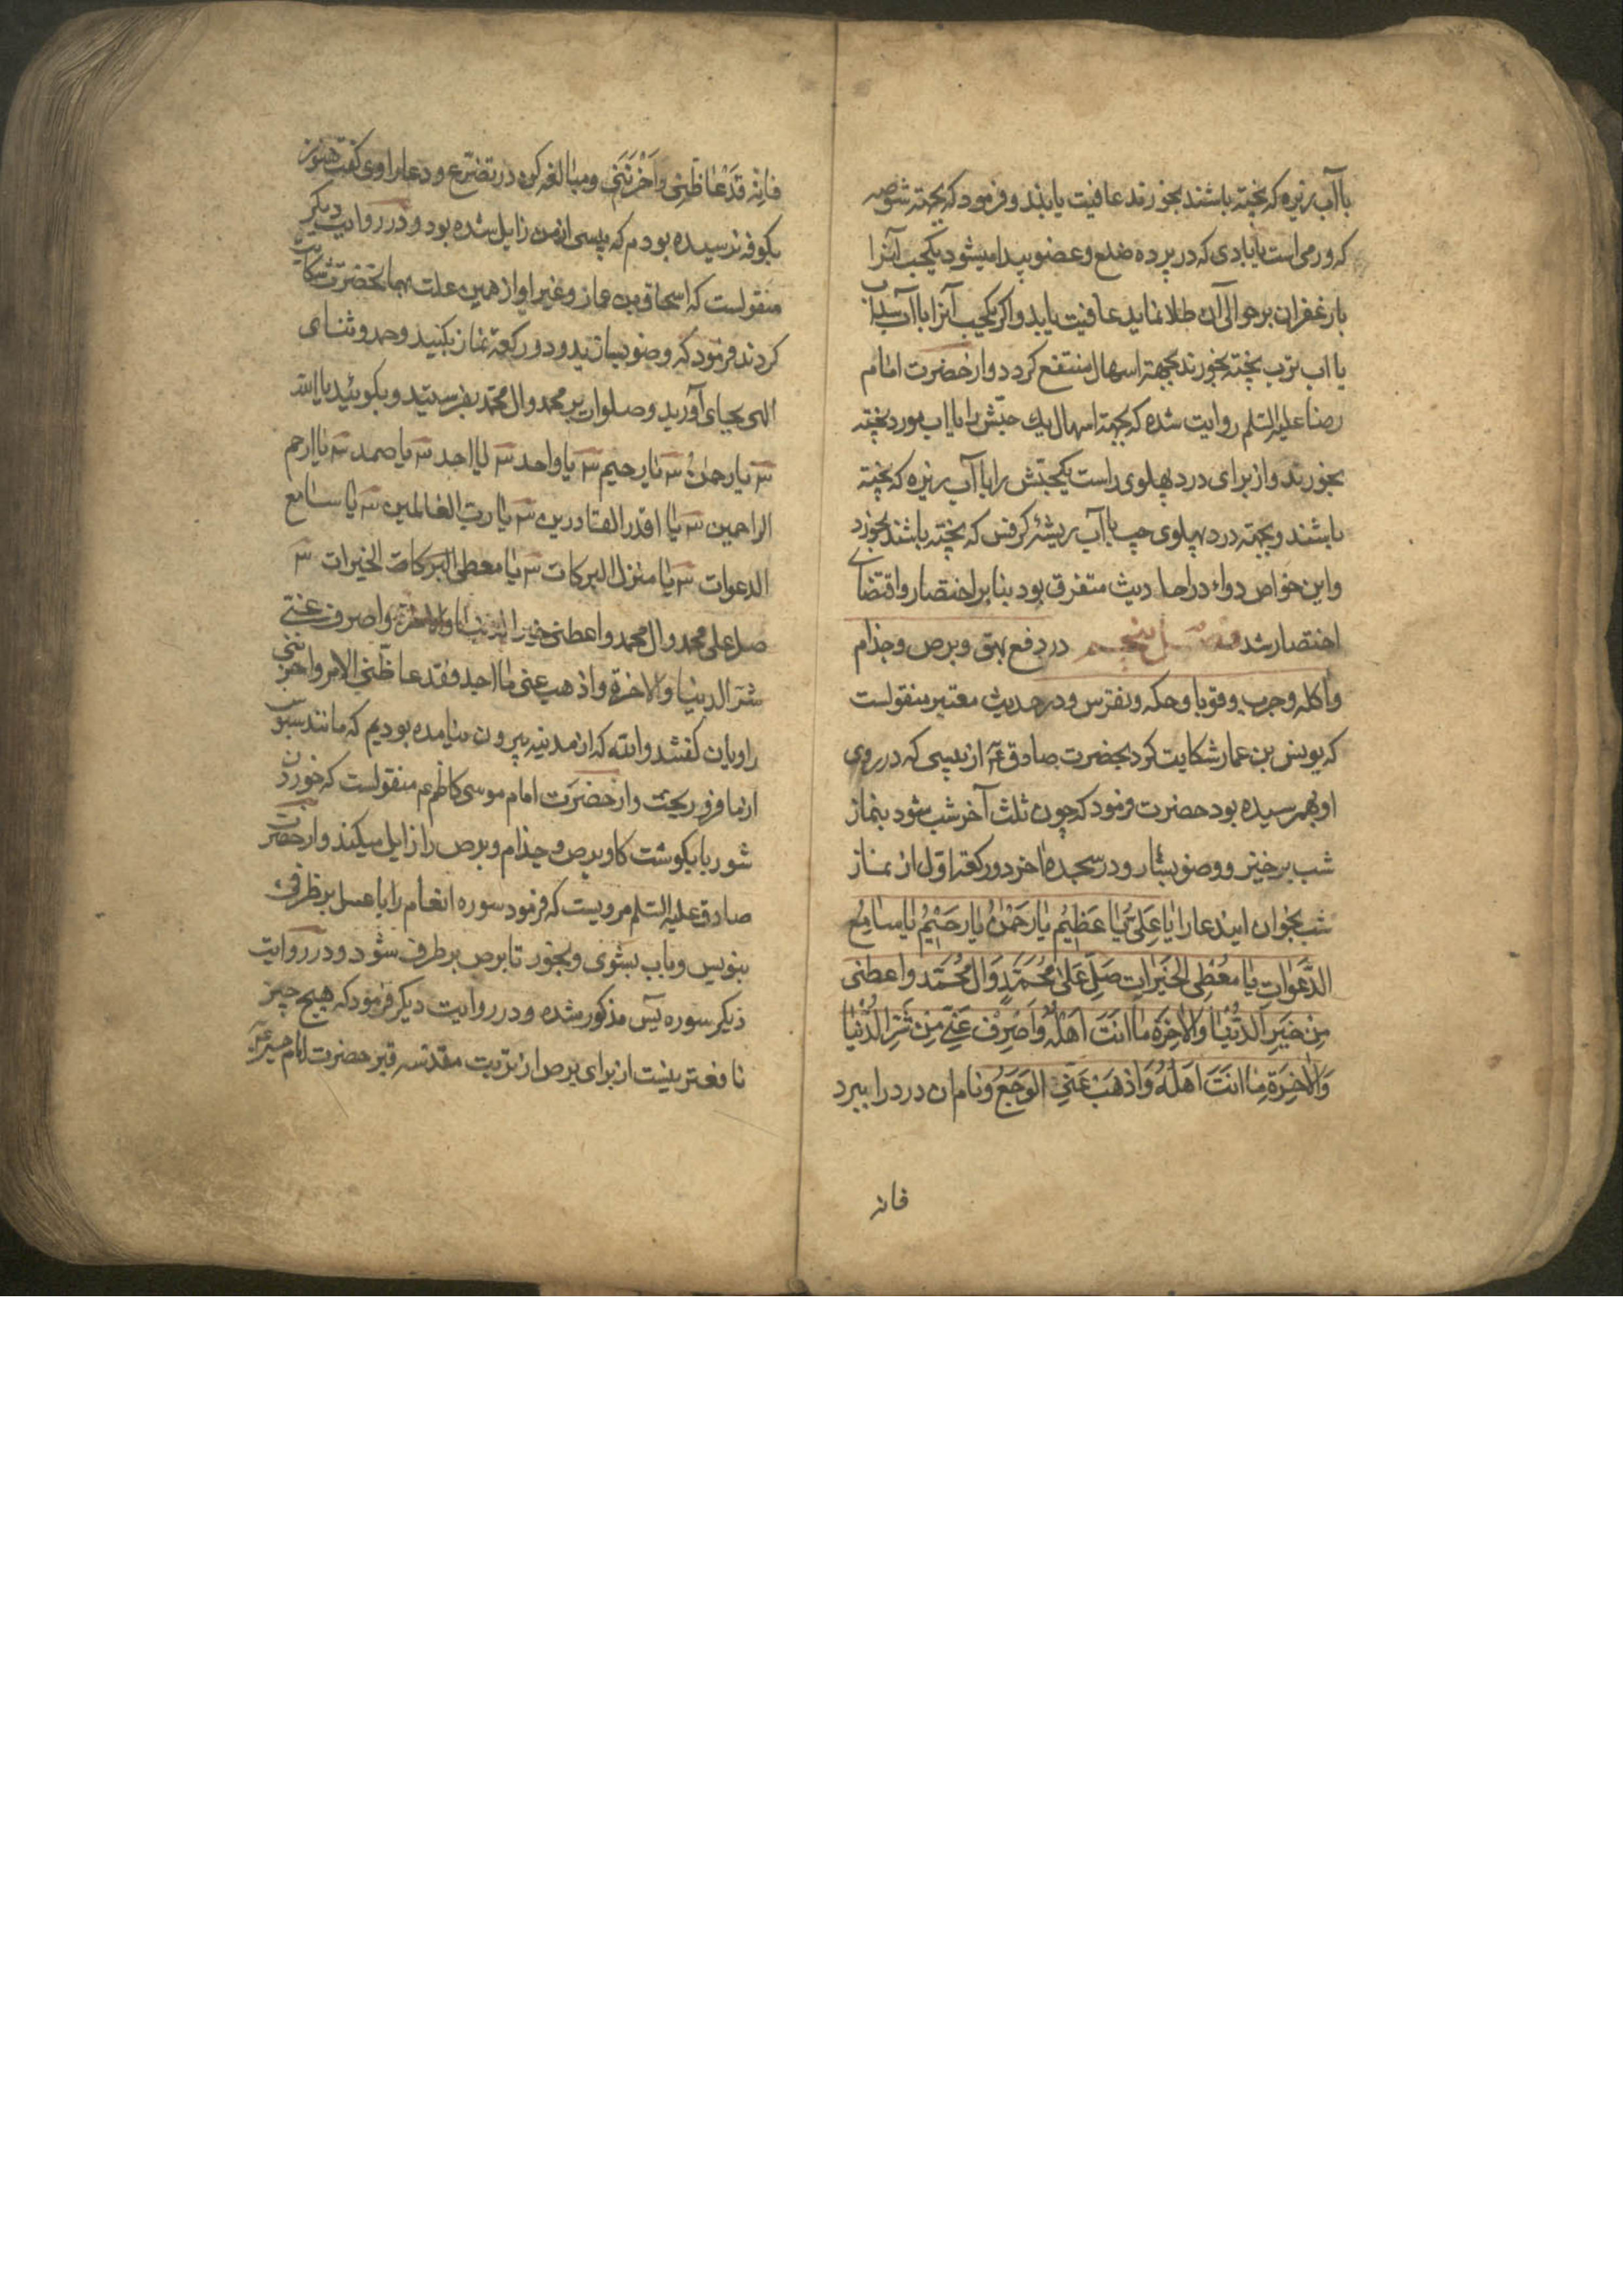 باآب زیره که پخته باشند بخورند عافیت یابند و فرمود که بجهته شوصه
که ورمی است یا بادی که در پرده ضلع و عضو پیدا میشود یکحب آنرا
با زعفران بر حوالی آن طلا نماید عافیت یابد و اکر یکحب آنرا با آب سداب
یا اب ترب پخته بخورند بجهته اسهال منتفع کردد و از حضرت امام
رضا علیه السلم روایت شده که بجهة اسهال یك حبّش را با اب مورد پخته
بخورند و از برای درد پهلوی راست یکحبّش را با آب زیره که پخته
باشند و بجهته درد پهلوی چپ با آب ریشهٔ کرفس که پخته باشند بخورد
و این خواص دواء در احادیث متفرق بود بنابر اختصار و اقتضای
اختصار شد فصل پنجم در دفع بهق و برص و جذام
و اکله و جرب و قوبا و حکه و نقرس و در حدیث معتبر منقولست
که یونس بن عمار شکایت کرد بحضرت صادق ع از پیسی که در روی
او بهمرسیده بود حضرت فرمود که چون ثلث آخر شب شود بنماز
شب برخیز و وضو بساز و در سجدهٔ اخر دو رکعة اوّل از نماز
شب بخوان ایندعا را یا عَلِیُّ یا عَظِیمُ یا رَحْمنُ یا رَحیْمُ یا سامِعُ
الدَّعَواتِ یا مُعْطِیَ الخَیَراتِ صَلِّ عَلیٰ مُحَمَّدٍ وَ الِ مُحَمَّد و اعطنی
مِنْ خَیرِ الدُّنْیا وَ الاخِرَةِ ما انَتَ اَهْلُهُ وَ اصْرِفْ عَنّی مِنْ شَرِّ الدُّنْیا
وَ الاخِرَةِ ما انَتَ اَهْلُهُ وَ اذْهَبْ عَنّیِ الوَجَعُ و نام ان درد را ببرد
فانه
فانه قَدْ غاظَنِی و اَحْزَنَنَی و مبالغه کن در تضرّع و دعا راوی کفت هنوز
بکوفه نرسیده بودم که پیسی از من زایل شده بود و در روایت دیکر
منقولست که اسحاق بن عمار و غیر او از همین علت بهمانحضرت شکایت
کردند فرمود که وضو بسازید و دو رکعة نماز بکنید و حمد و ثنای
الهی بجای آورید و صلوات بر محمد و ال محمد بفرستید و بکوئید یا الله
۳ یا رحمنُ ۳ یا رحیم ۳ یا واحد ۳ یا احد ۳ یا صمد ۳ یا ارحم
الراحمین ۳ یا اقدر القادرین ۳ یا ربّ العالمین ۳ یا سامع
الدعوات ۳ یا منزل البرکات ۳ یا معطی البرکات الخیرات ۳
صل علی محمد و ال محمد و اعطنی خیر الدنیا و الاخرة و اصرف عنّی
شرّ الدنیا و الاخرة و اذهب عنی ما اجد فقد غاظنی الامر و احزننی
راویان کفتند و الله که از مدینه بیرون نیامده بودیم که مانند سبوس
از ما فرو ریخت و از حضرت امام موسی کاظم ع منقولست که خوردن
شوربا بکوشت کاو برص و جذام و برص را زایل میکند و از حضرت
صادق علیه السلم مرویست که فرمود سوره انعام را با عسل بر ظرفی
بنویس و باب بشوی و بخور تا برص برطرف شود و در روایت
دیکر سوره یس مذکور شده و در روایت دیکر فرمود که هیچ چیز
نافعتر نیست از برای برص از تربت مقدسه قبر حضرت امام حسین ع